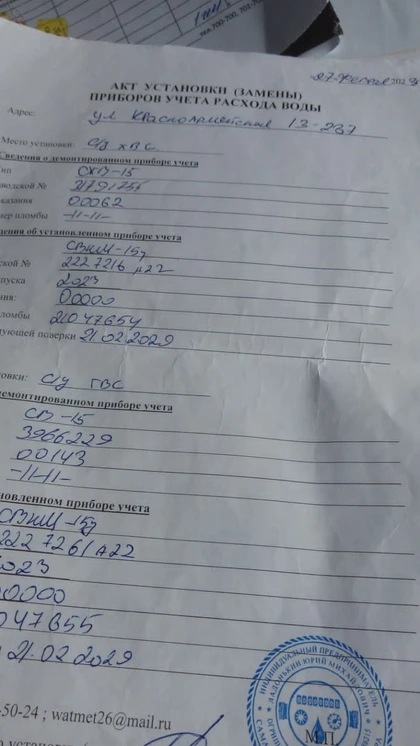 тел.700-700, 701-70
27 февраля 2023
АКТ УСТАНОВКИ (ЗАМЕНЫ)
ПРИБОРОВ УЧЕТА РАСХОДА ВОДЫ
Адрес: ул Красноармейская 13-237
Место установки: С/у ХВС
Сведения о демонтированном приборе учета
Тип СХВ-15
водской № 21791755
казания 00062
мер пломбы -11-11-
дения об установленном приборе учета
СВКМ-15
ской № 2227216
пуска 2023
ния: 00000
ломбы 21047654
дующей поверки 21.02.2029
овки: С/у ГВС
демонтированном приборе учета
СВ-15
3966229
00143
-11-11-
новленном приборе учета
СВКМ-15
222 7261 А22
023
0000
047655
21.02.2029
-50-24 ; watmet26@mail.ru
ИНДИВИДУАЛЬНЫЙ ПРЕДПРИНИМАТЕЛЬ
ЮРИЙ МИХАЙЛОВИЧ
М.П.